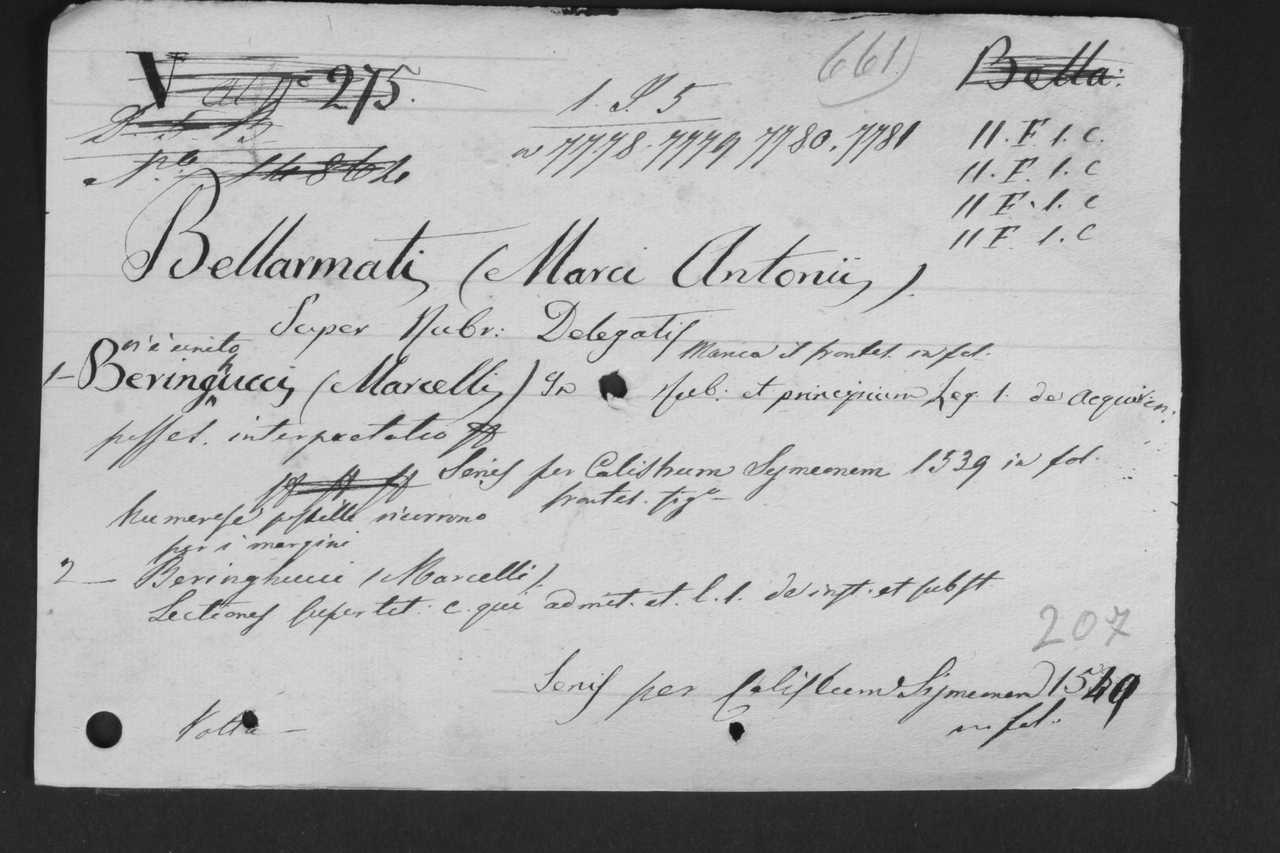 V al N.e 275.
661)
Bella:
1. P 5
N.o 14864
n 7778. 7779 7780. 7781
11. F. 1. C.
11. F. 1. C
11 F. 1. C
11 F. 1. C
Bellarmati (Marci Antonii).
Super Rubr: Delegatis
Manca il frontes. in fol.
vi è unito
1- Beringhucci (Marcelli) In Rub: et principium Leg. 1. de acquiren:
posses. interpretatio
Senis per Calistrum Symeonem 1539 in fol.
frontes. fig.o
Numerose postille ricorrono
per i margini
2 — Beringhucci (Marcelli)
Lectiones super tit. c. qui admit. et. l. 1. de inst. et subst
207
Senis per Calistrum Symeonem 1549
in fol.
Volta —